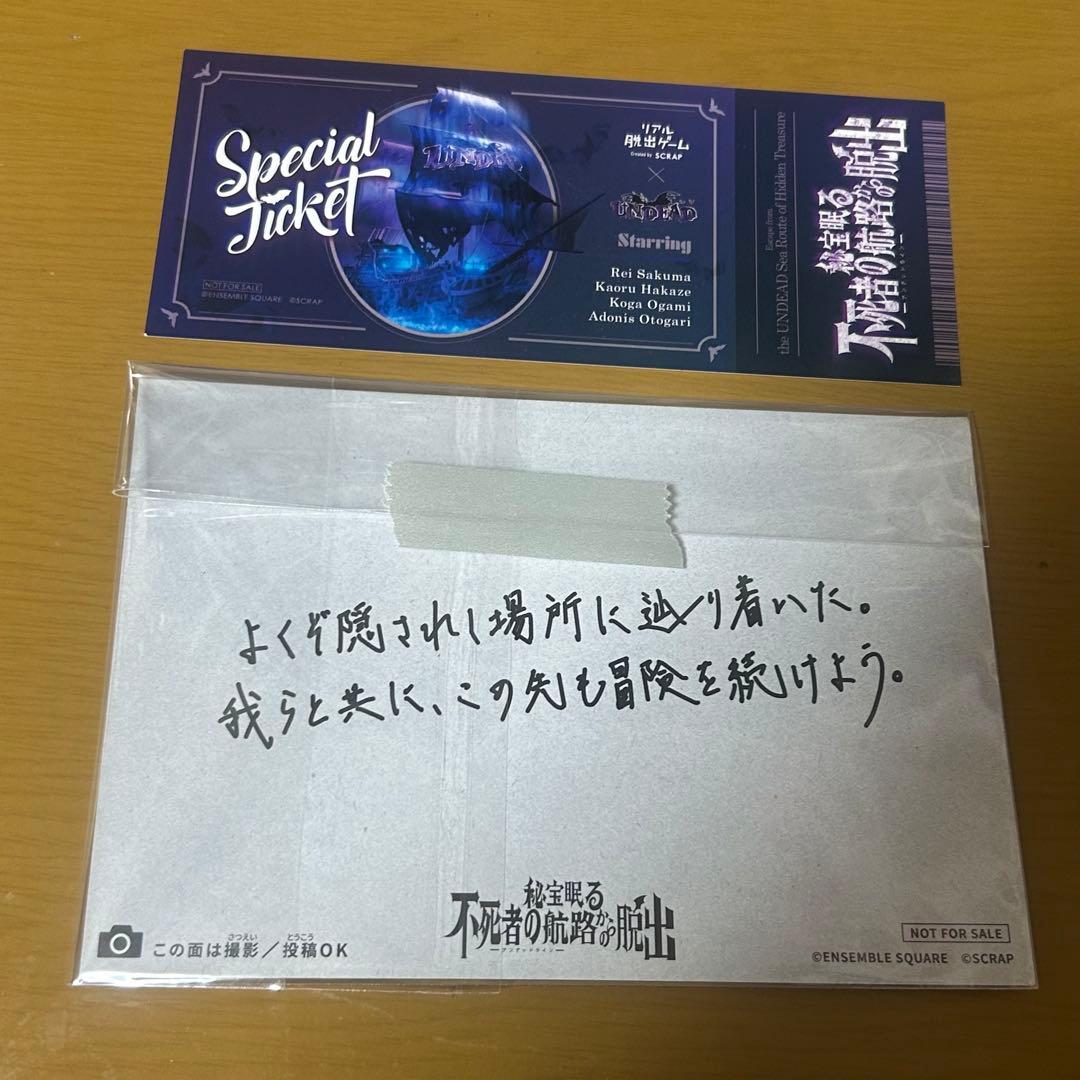 Special
Ticket
NOT FOR SALE
©ENSEMBLE SQUARE ©SCRAP
UNDEAD
リアル
脱出ゲーム
Created by SCRAP
×
UNDEAD
Starring
Rei Sakuma
Kaoru Hakaze
Koga Ogami
Adonis Otogari
Escape from
the UNDEAD Sea Route of Hidden Treasure
秘宝眠る
不死者の航路からの脱出
アンデッドライン
よくぞ隠されし場所に辿り着いた。
我らと共に、この先も冒険を続けよう。
秘宝眠る
不死者の航路からの脱出
アンデッドライン
さつえい とうこう
この面は撮影／投稿OK
NOT FOR SALE
©ENSEMBLE SQUARE ©SCRAP